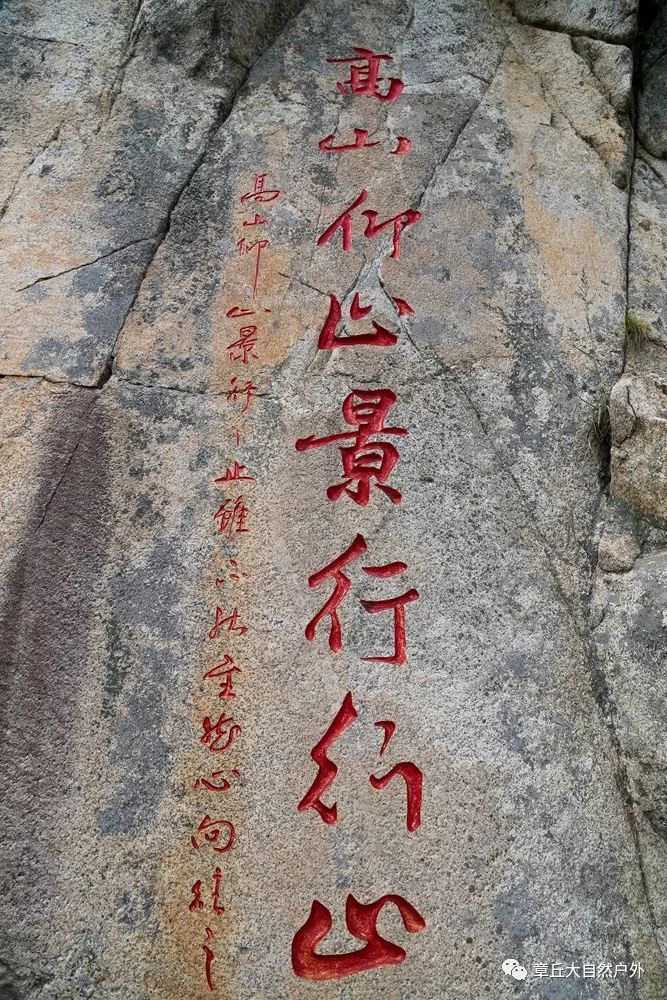 高山仰止景行行止
高山仰止景行々止雖不能至然心向往之
章丘大自然户外